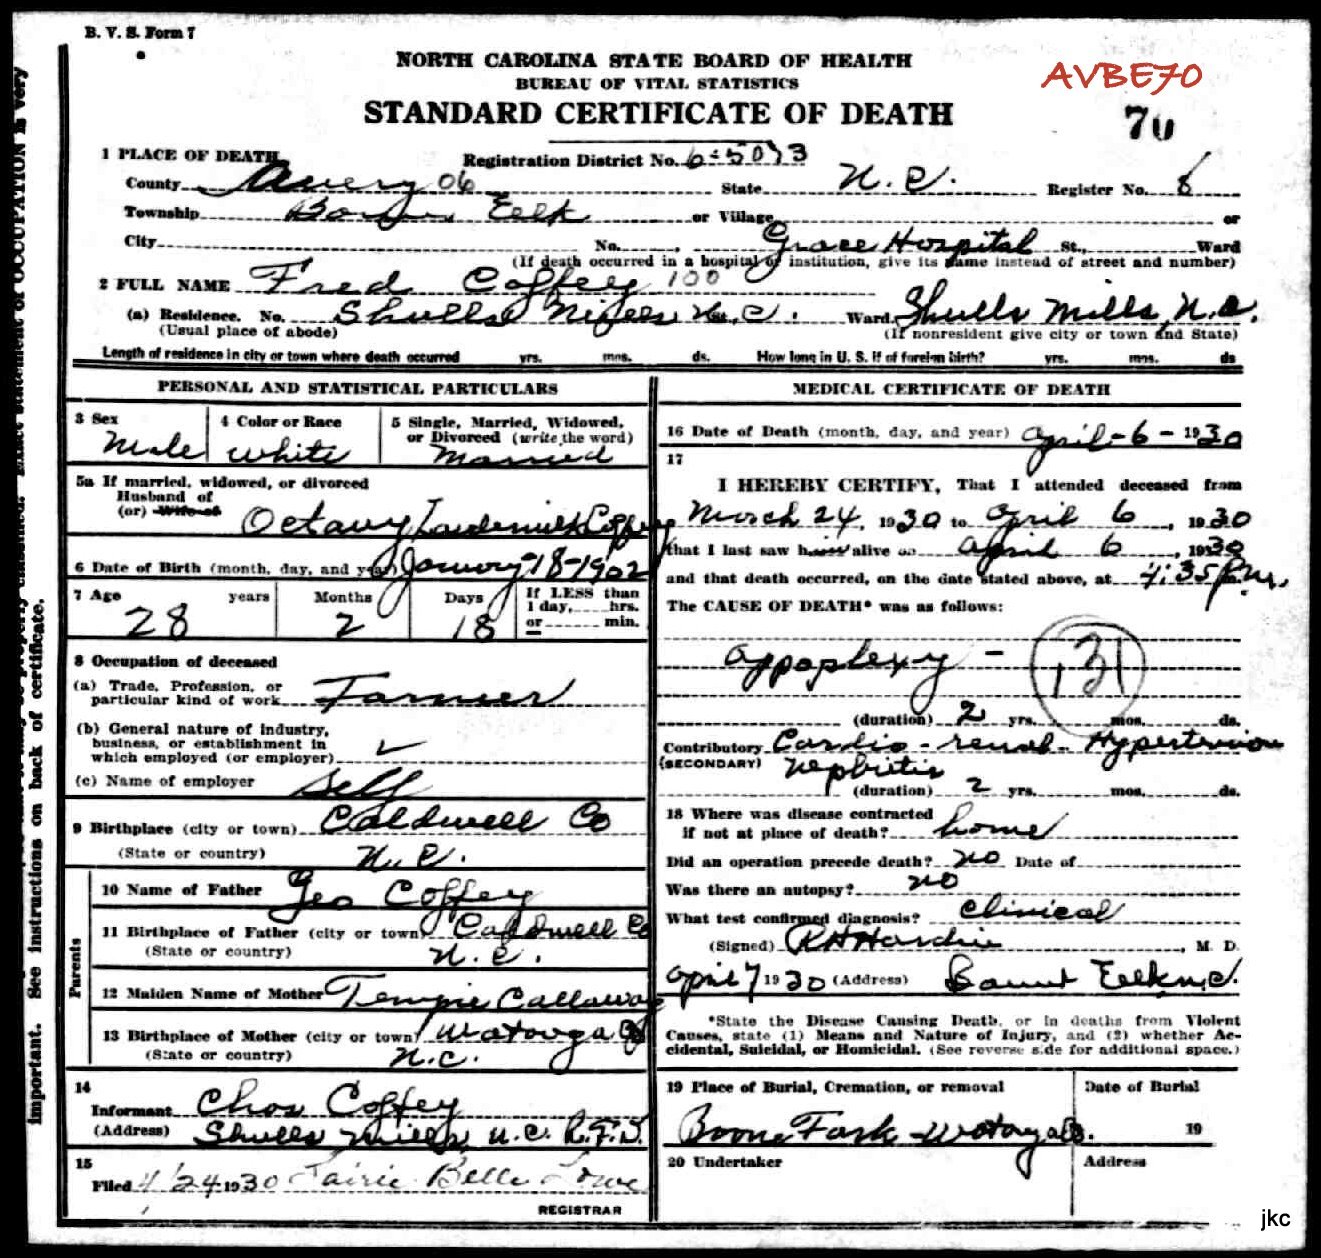 B. V. S. Form 7
NORTH CAROLINA STATE BOARD OF HEALTH
BUREAU OF VITAL STATISTICS
STANDARD CERTIFICATE OF DEATH
AVBE70
70
1 PLACE OF DEATH
Registration District No. 6-5073
County Avery 06 State N.C. Register No. 8
Township Elk or Village or
City No. Grace Hospital St., Ward
(If death occurred in a hospital or institution, give its name instead of street and number)
2 FULL NAME Fred Coffey 100
(a) Residence. No. Shulls Mills N.C. Ward. Shulls Mills, N.C.
(Usual place of abode) (If nonresident give city or town and State)
Length of residence in city or town where death occurred yrs. mos. ds. How long in U. S. if of foreign birth? yrs. mos. ds
PERSONAL AND STATISTICAL PARTICULARS
3 Sex 4 Color or Race 5 Single, Married, Widowed, or Divorced (write the word)
Male White Married
5a If married, widowed, or divorced
Husband of
(or) Wife of Octavy Coffey
6 Date of Birth (month, day, and year) January-18-1902
7 Age years Months Days If LESS than 1 day, hrs. or min.
28 2 18
8 Occupation of deceased
(a) Trade, Profession, or
particular kind of work Farmer
(b) General nature of industry,
business, or establishment in
which employed (or employer)
(c) Name of employer Self
9 Birthplace (city or town) Caldwell Co
(State or country) N.C.
Parents
10 Name of Father Geo Coffey
11 Birthplace of Father (city or town) Caldwell Co
(State or country) N.C.
12 Maiden Name of Mother Tempie Callaway
13 Birthplace of Mother (city or town) Watauga Co
(State or country) N.C.
14
Informant Chas Coffey
(Address) Shulls Mills, N.C. R.F.D.
15
Filed 4/24 1930 Fairie Belle Lowe
REGISTRAR
MEDICAL CERTIFICATE OF DEATH
16 Date of Death (month, day, and year) April-6-1930
17
I HEREBY CERTIFY, That I attended deceased from
March 24, 1930 to April 6, 1930
that I last saw him alive on April 6, 1930
and that death occurred, on the date stated above, at 4:35 P.M.
The CAUSE OF DEATH* was as follows:
Appoplexy - 131
(duration) 2 yrs. mos. ds.
Contributory Cardio-renal-Hypertension
(SECONDARY) Nephritis
(duration) 2 yrs. mos. ds.
18 Where was disease contracted
if not at place of death? home
Did an operation precede death? no Date of
Was there an autopsy? no
What test confirmed diagnosis? Clinical
(Signed) R H Hardin, M. D.
April 7 1930 (Address) Elk N.C.
*State the Disease Causing Death, or in deaths from Violent
Causes, state (1) Means and Nature of Injury, and (2) whether Ac-
cidental, Suicidal, or Homicidal. (See reverse side for additional space.)
19 Place of Burial, Cremation, or removal Date of Burial
Boone Fork - Watauga Co. 19
20 Undertaker Address
important. See instructions on back of certificate.
jkc